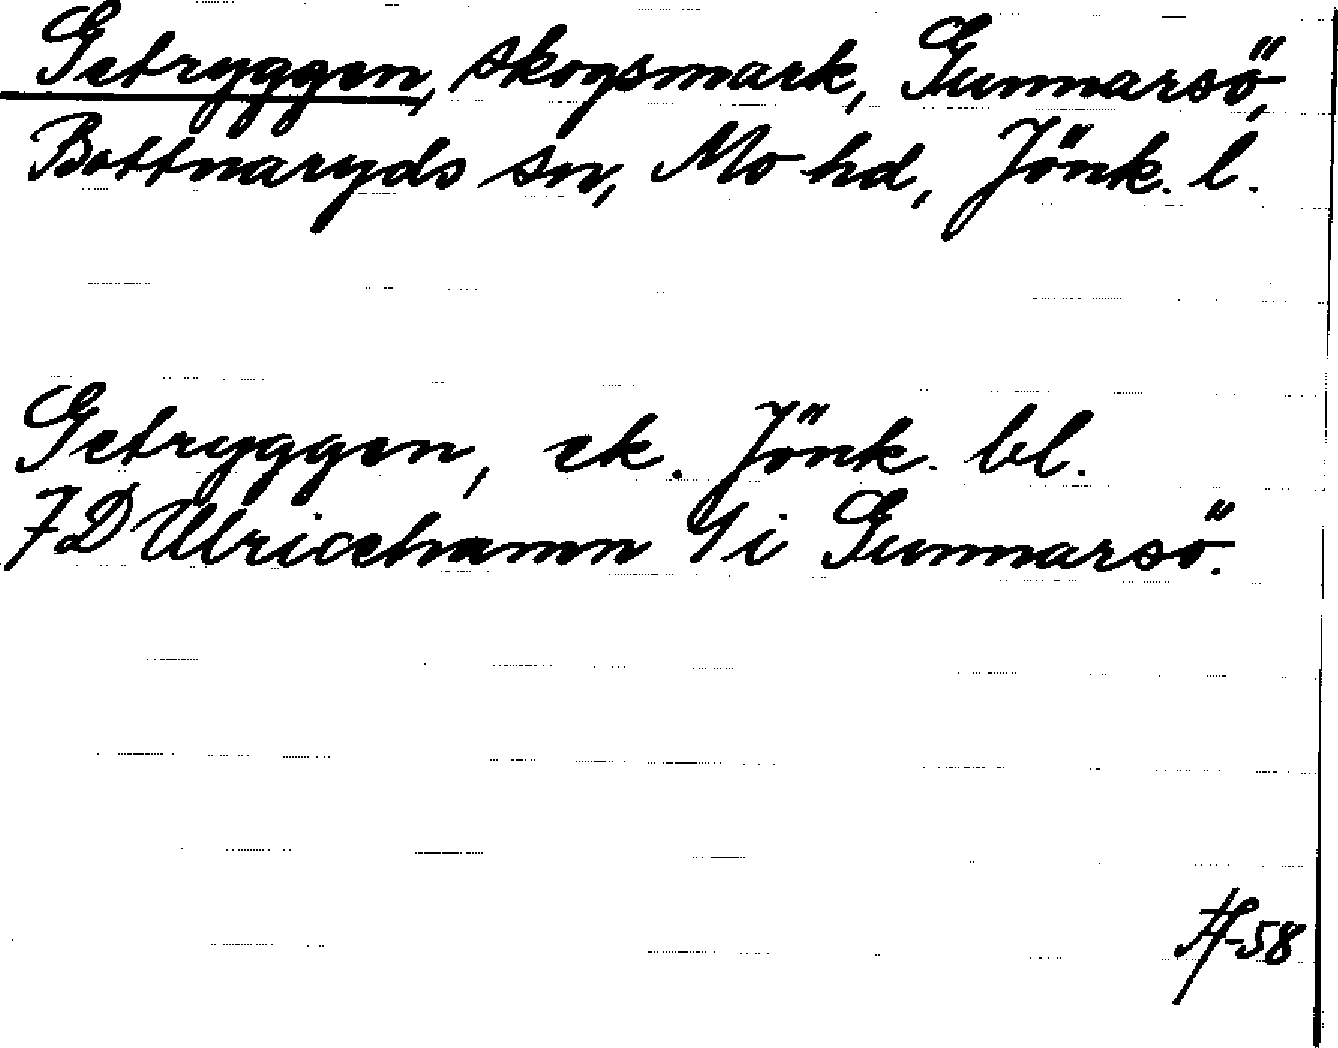 Getryggen, skogsmark, Gunnarsö,
Bottnaryds sn, Mo hd, Jönk. l.
Getryggen, ek. Jönk. bl.
7D Ulricehamn 9i Gunnarsö.
-58